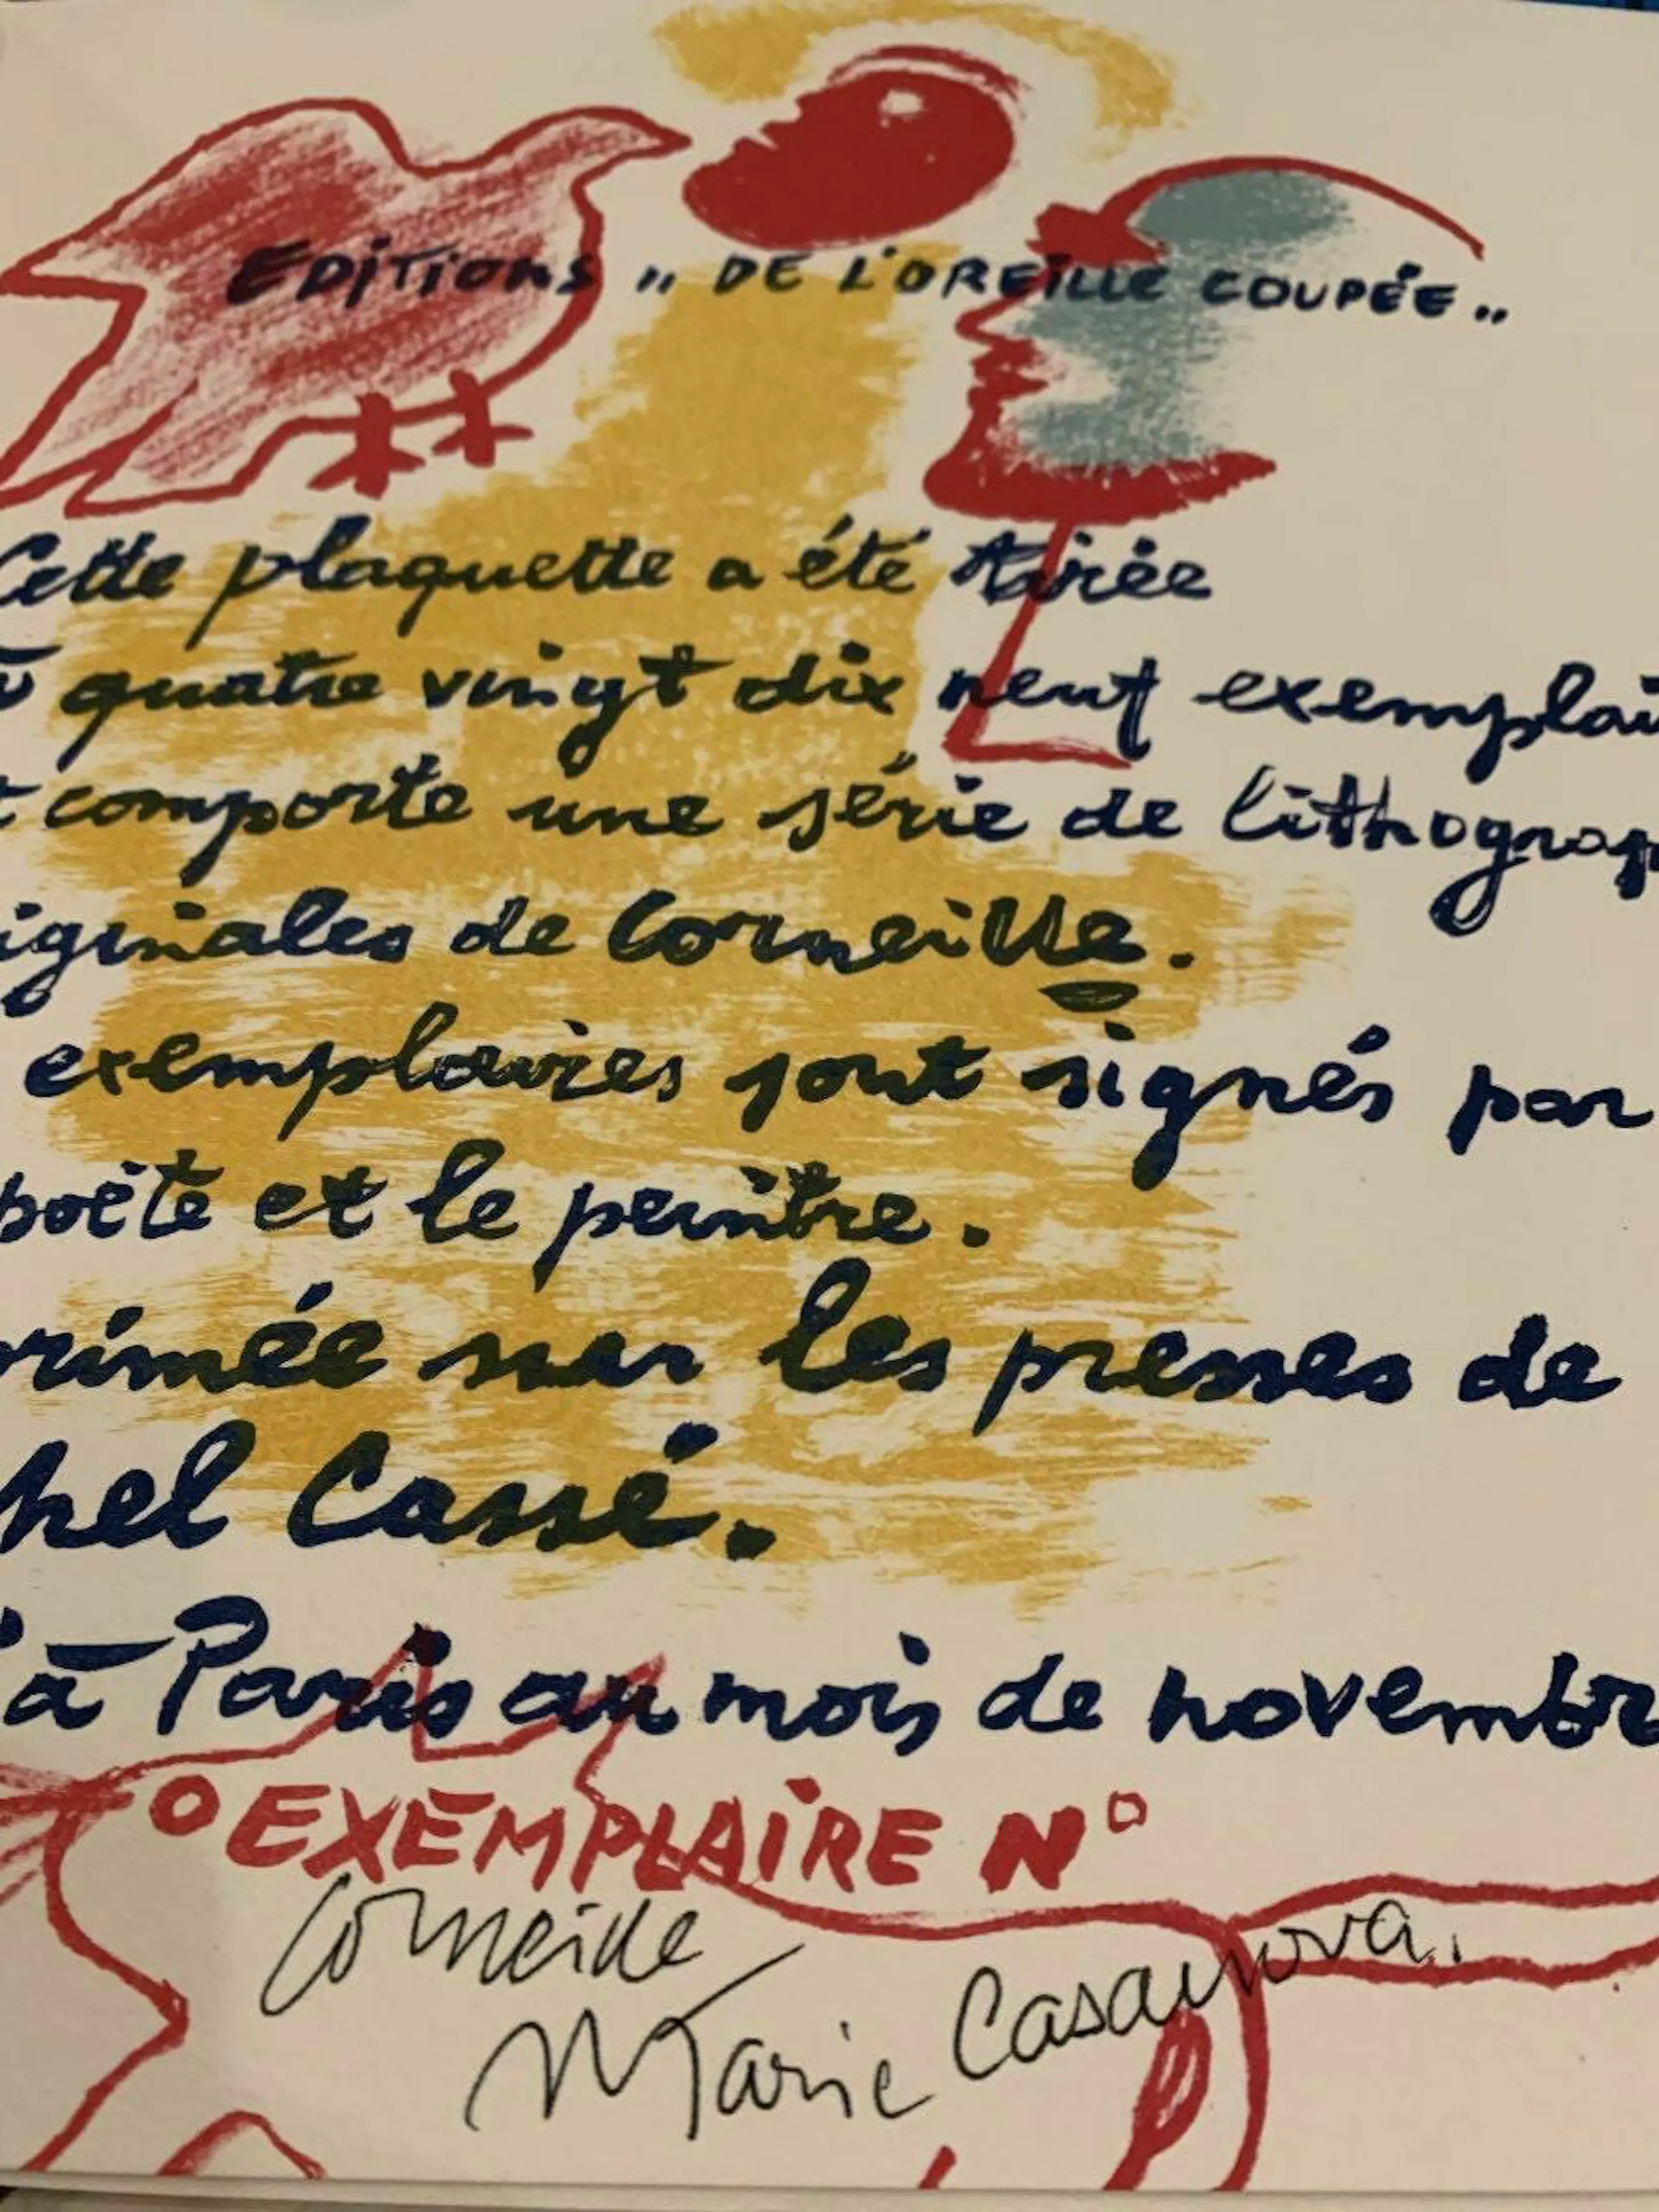 EDITIONS " DE L'OREILLE COUPÉE "
Cette plaquette a été tirée
à quatre vingt dix neuf exemplai
t comporte une série de lithograp
iginales de Corneille.
exemplaires sont signés par
poète et le peintre.
rimée sur les presses de
hel Cassé.
à Paris au mois de novembre
EXEMPLAIRE N°
Corneille
Marie Casanova.